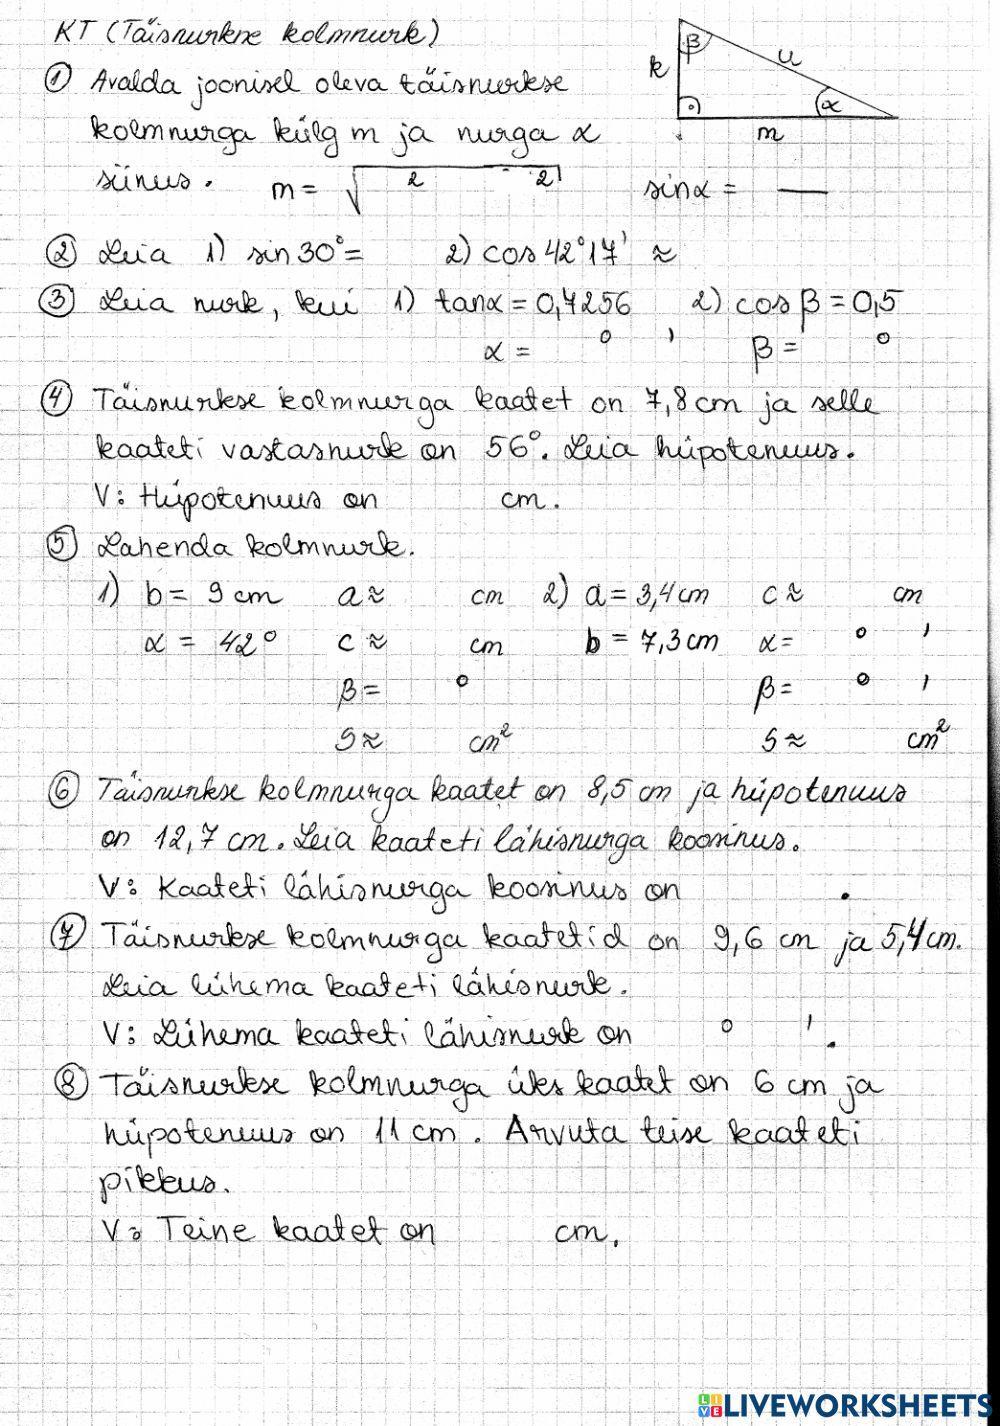 KT (Täisnurkne kolmnurk)
β
k
u
α
m
① Avalda joonisel oleva täisnurkse
kolmnurga külg m ja nurga α
siinus. m = √ 2 - 2 sinα = —
② Leia 1) sin 30° = 2) cos 42°17' ≈
③ Leia nurk, kui 1) tanα = 0,7256 2) cos β = 0,5
α = ° ' β = °
④ Täisnurkse kolmnurga kaatet on 7,8 cm ja selle
kaateti vastasnurk on 56°. Leia hüpotenuus.
V: Hüpotenuus on cm.
⑤ Lahenda kolmnurk.
1) b = 9 cm a ≈ cm 2) a = 3,4 cm c ≈ cm
α = 42° c ≈ cm b = 7,3 cm α = ° '
β = ° β = ° '
S ≈ cm² S ≈ cm²
⑥ Täisnurkse kolmnurga kaatet on 8,5 cm ja hüpotenuus
on 12,7 cm. Leia kaateti lähisnurga koosinus.
V: Kaateti lähisnurga koosinus on .
⑦ Täisnurkse kolmnurga kaatetid on 9,6 cm ja 5,4 cm.
Leia lühema kaateti lähisnurk.
V: Lühema kaateti lähisnurk on ° '.
⑧ Täisnurkse kolmnurga üks kaatet on 6 cm ja
hüpotenuus on 11 cm. Arvuta teise kaateti
pikkus.
V: Teine kaatet on cm.
LIVE LIVEWORKSHEETS